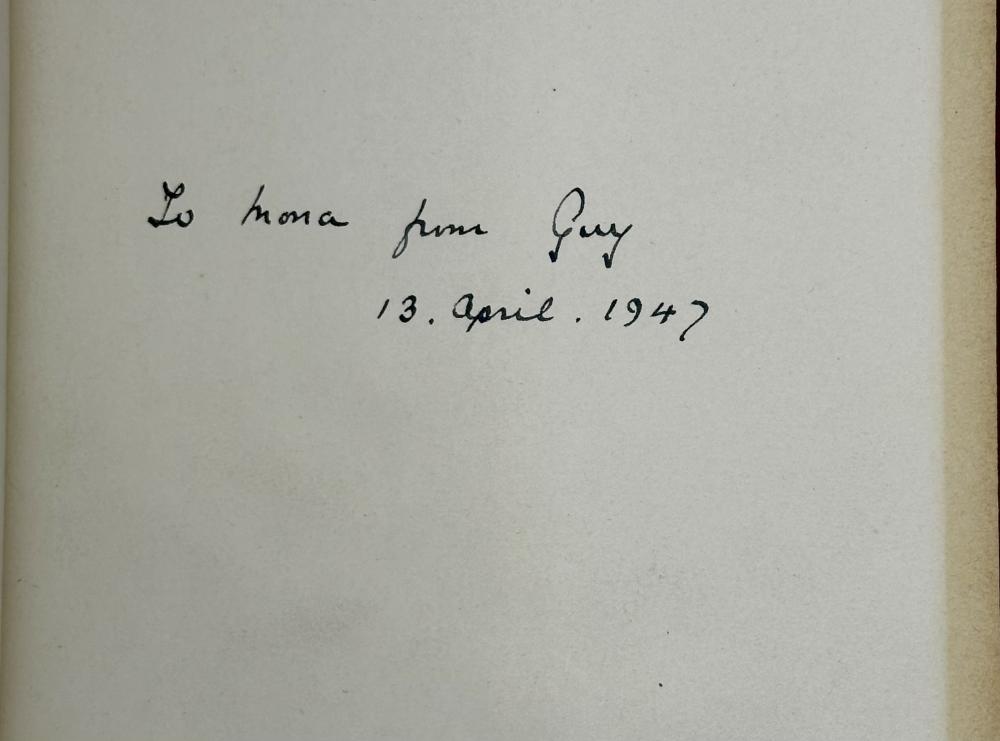 To Mona from Guy
13. April. 1947